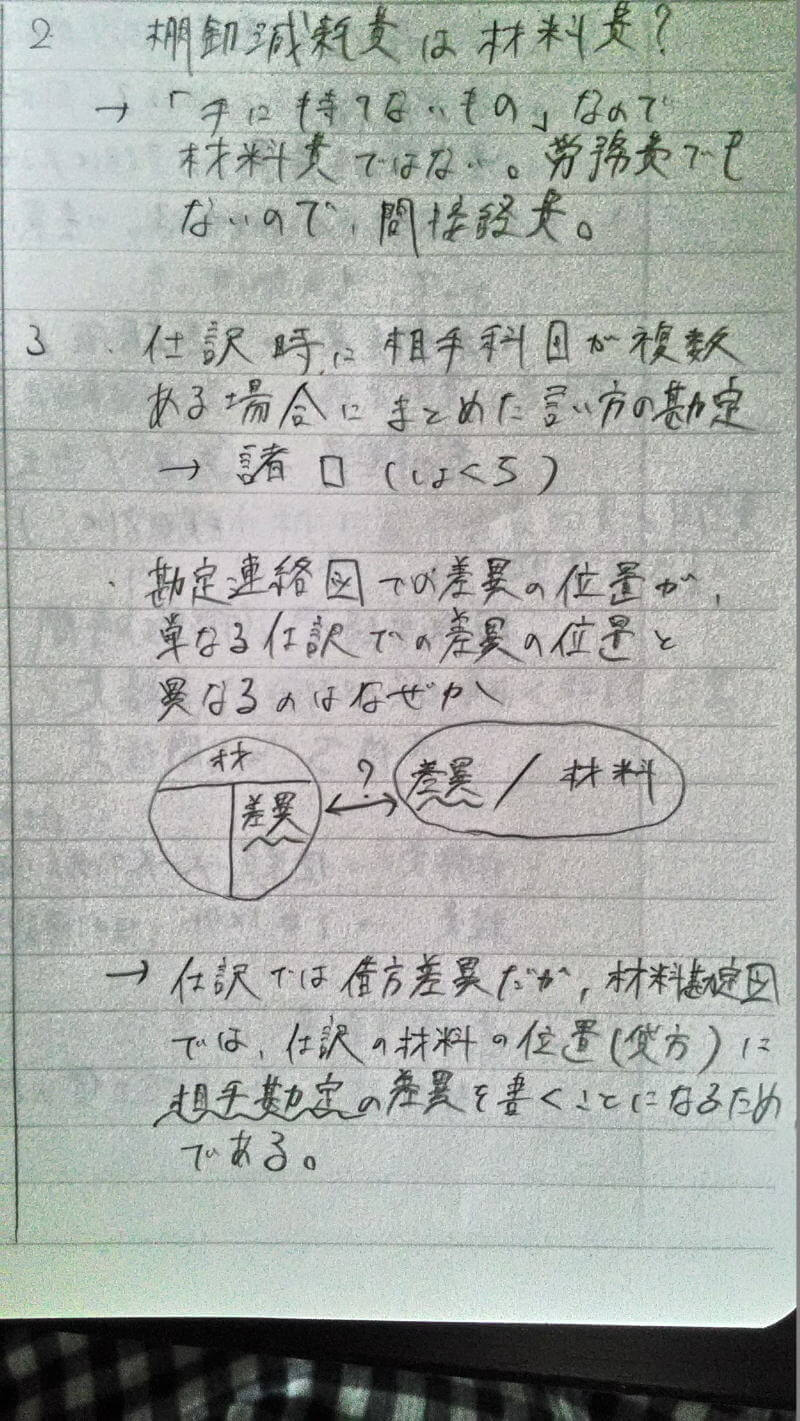 2 棚卸減耗費は材料費?
→「手に持てないもの」なので
材料費ではない。労務費でも
ないので、間接経費。
3 ・仕訳時に相手科目が複数
ある場合にまとめた言い方の勘定
→ 諸口(しょくち)
・勘定連絡図での差異の位置が、
単なる仕訳での差異の位置と
異なるのはなぜか
材
差異
?
差異 / 材料
→ 仕訳では借方差異だが、材料勘定図
では、仕訳の材料の位置(貸方)に
相手勘定の差異を書くことになるため
である。